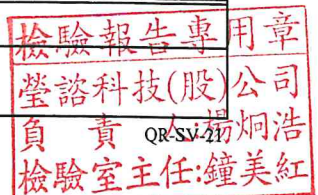 檢驗報告專用章
瑩諮科技(股)公司
負責人:楊炯浩
QR-SV-21
檢驗室主任:鐘美紅